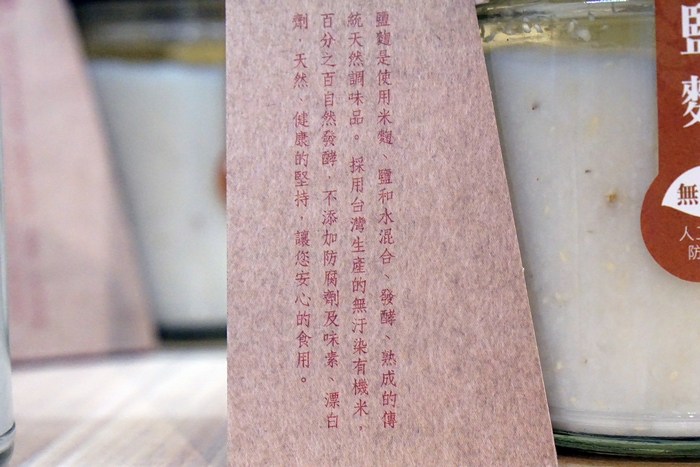 鹽麴是使用米麴、鹽和水混合、發酵、熟成的傳
統天然調味品。採用台灣生產的無汙染有機米，
百分之百自然發酵，不添加防腐劑及味素、漂白
劑，天然、健康的堅持，讓您安心的食用。
鹽麴
無
人工
防